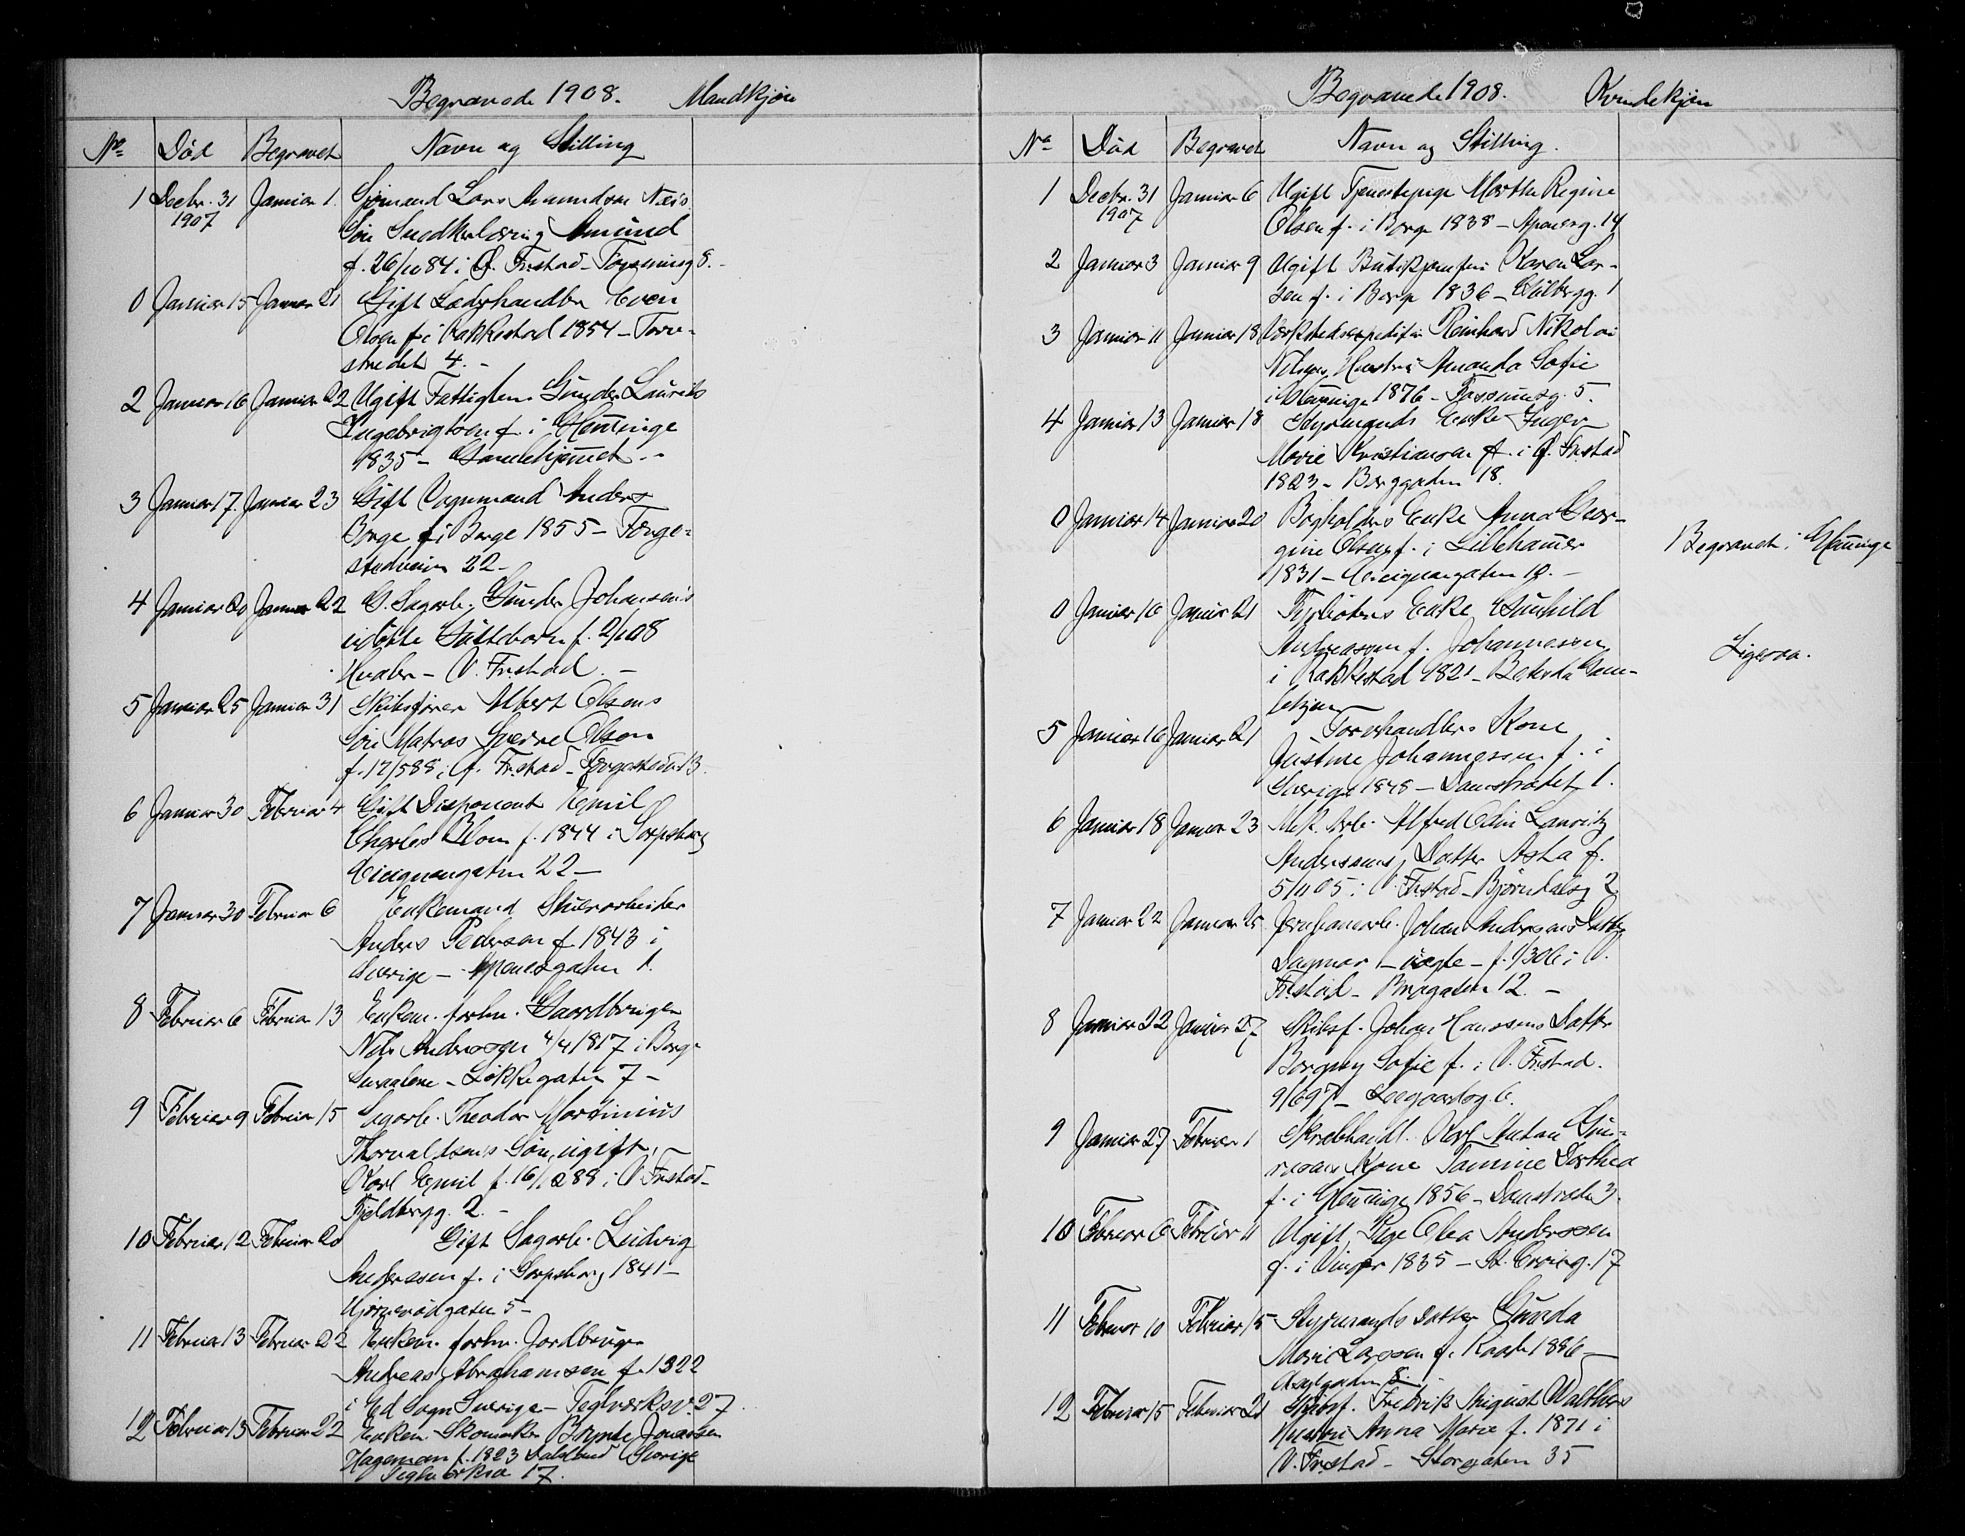 Begravede 1908. Mandkjøn
No Død Begravet Navn og Stilling
1 Decbr. 31 Januar 1 Sømand Lars Amundsen Næs
1907 Søn Amund
f. 26/10 84 i Ø. Fr.stad - 8. -
0 Januar 15 Januar 21 Gift Læderhandler Even
Olsen f. i Rakkestad 1854 - Torve-
strædet 4. -
2 Januar 16 Januar 22 Ugift Fattiglem Gunder Laurits
Ingebrigtsen f. i Glemminge
1835 - Gamlehjemmet. -
3 Januar 17. Januar 23 Gift Vognmand Anders
Borge f. i Borge 1855 - Farge-
22 -
4 Januar 20 Januar 22 G. Sagarb. Gunder Johansens
udøbte Guttebarn f. 2/1 08
Hvaler - V. Fr.stad. -
5 Januar 25 Januar 31 Skibsfører Albert Olsens
Søn Matros Sverre Olsen
f. 17/5 88 i Ø. Fr.stad - 13.
6 Januar 30 Februar 4 Gift Disponent Emil
Charles Blom f. 1844 i Sarpsborg
Cicignongaten 22 -
7 Januar 30 Februar 6 Enkemand Stuerarbeider
Anders Pedersen f. 1843 i
Sverige - Apenesgaten 1.
8 Februar 6 Februar 13 Enkem. forhv. Gaardbruger
Nils Andersen 4/4 1817 i Borge
Smaalene - Løkkegaten 7 -
9 Februar 9 Februar 15 Sagarb. Theodor Martinius
Thorvaldsens Søn, ugift,
Karl Emil f. 16/12 88 i V. Fr.stad -
Fjeldbergg. 2. -
10 Februar 12 Februar 20 Gift Sagarb. Ludvig
Andersen f. i Sarpsborg 1841 -
5 -
11 Februar 13 Februar 22 Enkem. forhv. Jordbruger
Andreas Abrahamsen f. 1822
i Ed Sogn Sverige - Teglverksv. 27.
12 Februar 13 Februar 22 Enkem. Skomaker Jonassen
Hageman f. 1823 Sverige
17.
Begravede 1908. Kvindekjøn
No Død Begravet Navn og Stilling.
1 Decbr. 31 Januar 6 Ugift Tjenestepige Marthe Regine
1907 Olsen f. i Borge 1838 - Apenesg. 14
2 Januar 3 Januar 9 Ugift Karen Lar-
sen f. i Borge 1836 - Gulbergg. 1
3 Januar 11 Januar 18 Reinhard Nikolai
Nilsens Hustru Amanda Sofie
i Glemminge 1876 - 5.
4 Januar 13 Januar 18 Styrmands Enke Inger
Marie Kristiansen f. i Ø. Fr.stad
1823 - Berggaden 18.
0 Januar 14 Januar 20 Bogholders Enke Anna Geor-
gine Olsen f. i Lillehammer
1831 - Cicignongaten 10. -
Begravet i Glemminge
0 Januar 16 Januar 21 Fyrbøters Enke Gunhild
Andreassen f. Johannesen
i Rakkestad 1821 - Betesda Gam-
lehjem
Ligesaa.
5 Januar 16 Januar 21 Farvehandlers Kone
Justine Johannessen f. i
Sverige 1848 - Damstrædet 1.
6 Januar 18 Januar 23 Mek. Arb. Alfred Odin Lauritz
Andersens Datter Asta f.
5/11 05 i V. Fr.stad - Bjørndalsg 2
7 Januar 22 Januar 25 Johan Andersens Datter
Dagmar - uægte - f. 1/3 06 i V.
Fr.stad - Brogaten 12. -
8 Januar 22 Januar 27 Skibsf. Johan Hanssens Datter
Borgny Sofie f. i V. Fr.stad.
9/6 97 - Leegaardsg. 6.
9 Januar 27 Februar 1 Karl Anton Gun-
Kone Samine Dorthea
f. i Glemminge 1856 - Damstrædet 3.
10 Februar 6 Februar 11 Ugift Pige Olea Anderssen
f. i Vinger 1835 - St. Croixg. 17
11 Februar 10 Februar 15 Styrmands Datter Gunda
Marie Larssen f. i Raade 1886 -
8.
12 Februar 15 Februar 21 Skibsf. Fredrik August Walthers
Hustru Anna Marie f. 1871 i
V. Fr.stad - Storgaten 35